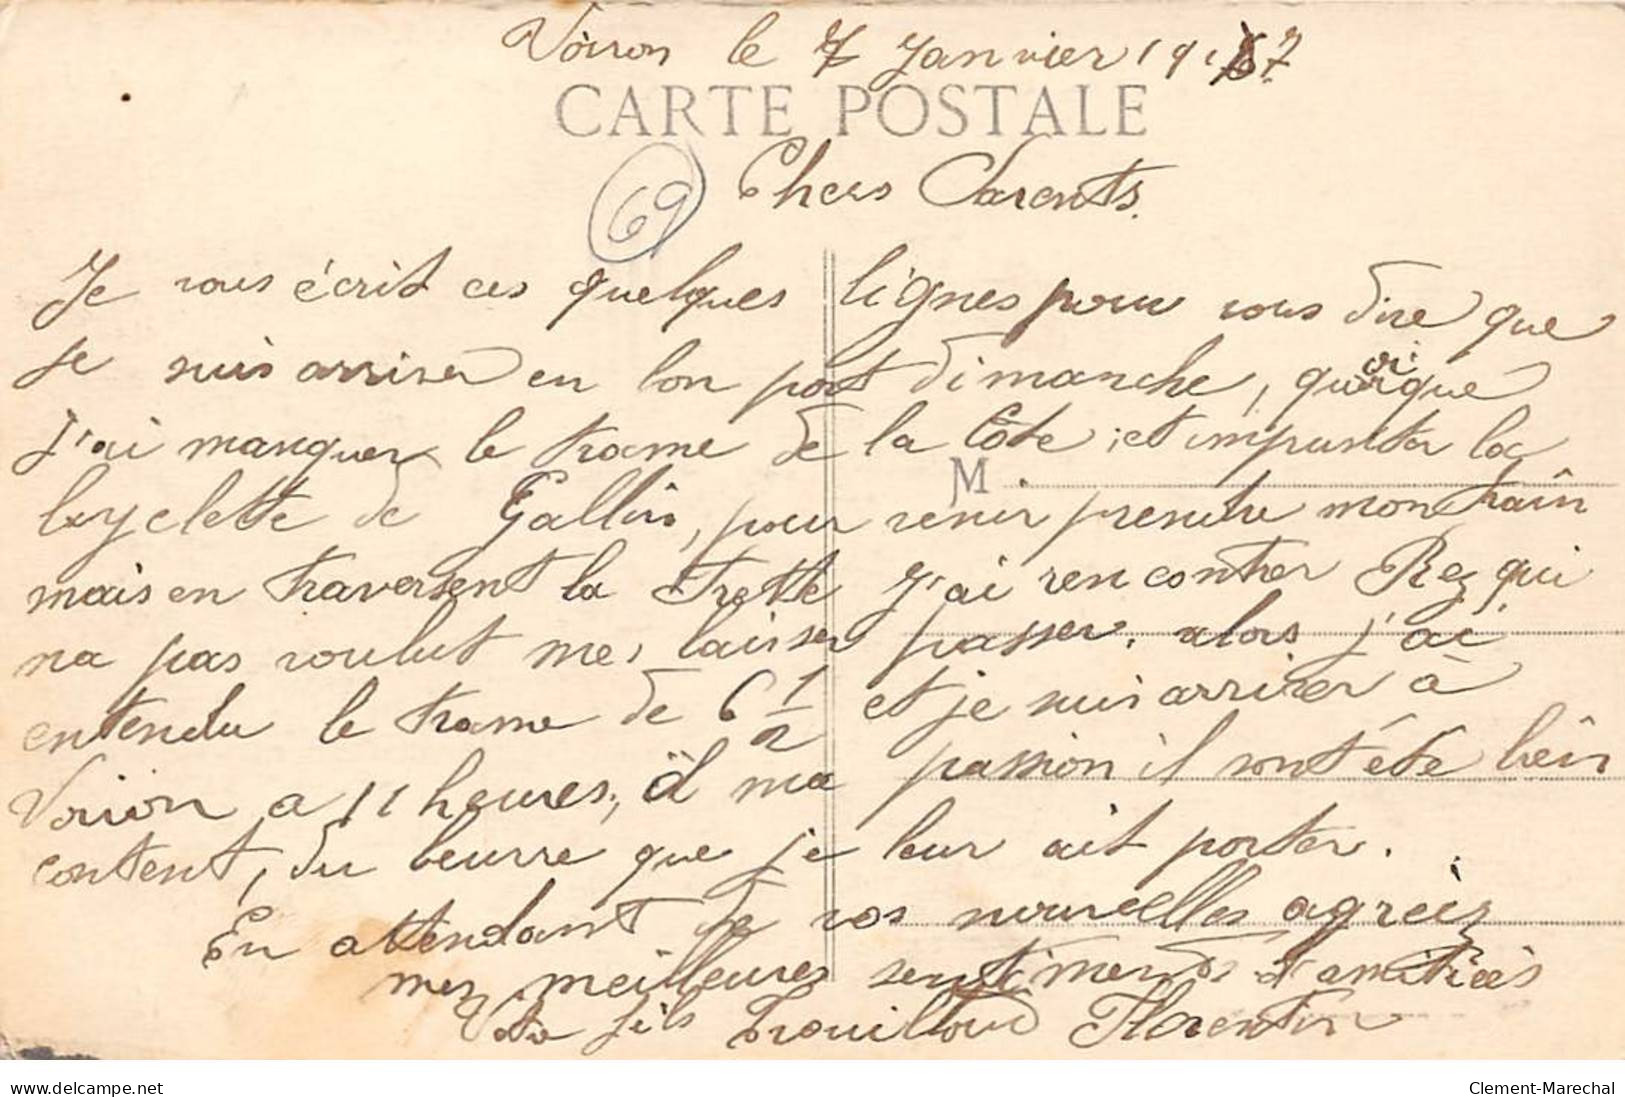 Voiron le 7 Janvier 1917
CARTE POSTALE
69
Chers Parents.
Je vous écrit ces quelques lignes pour vous dire que
je suis arriver en bon port dimanche, quoique
j'ai manquer le trame de la Côte, et imprunter la
M
bycclette de Gallin, pour venir prendre mon train
mais en traversent la Frette j'ai rencontrer Rey qui
na pas voulut me laisser passer. alors j'ai
entendu le trame de 6 1/2 et je suis arriver à
Voiron a 11 heures, à ma passion il sont été bein
content, du beurre que je leur ait porter.
En attendant de vos nouvelles agréez
mes meilleures sentiments d'amitiées
Votre fils Trouilloud Florentin
www.delcampe.net
Clement-Marechal